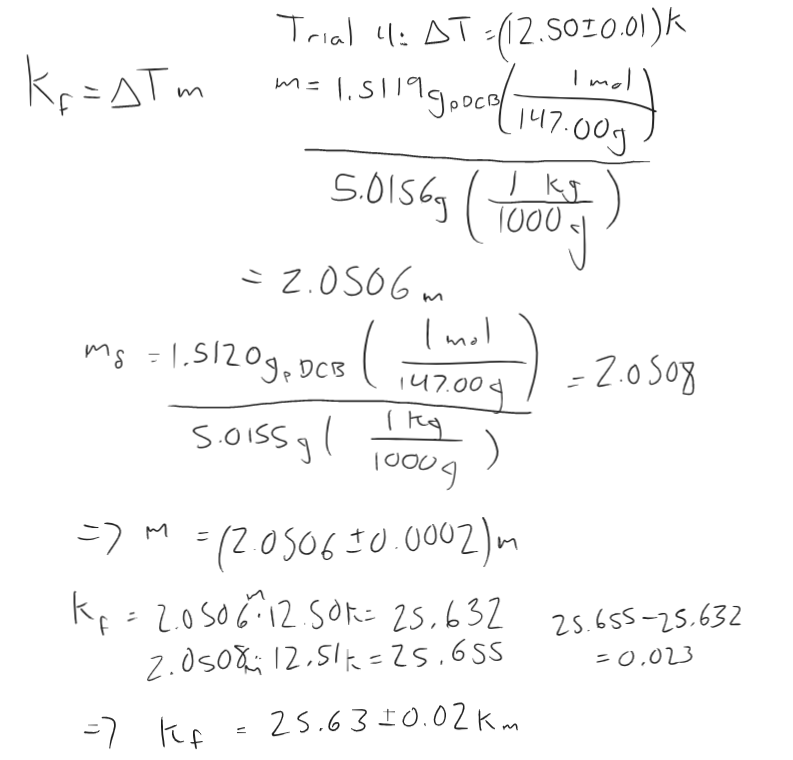 Trial 4: ΔT = (12.50±0.01)K
K_f = ΔTm
m = 1.5119g pDCB (1 mol / 147.00g) / 5.0156g (1 kg / 1000g)
= 2.0506 m
m_δ = 1.5120g pDCB (1 mol / 147.00g) / 5.0155g (1 kg / 1000g) = 2.0508
=> m = (2.0506 ±0.0002)m
K_f = 2.0506 m · 12.50K = 25.632 25.655-25.632
2.0508m · 12.51K = 25.655 = 0.023
=> K_f = 25.63 ±0.02 K m